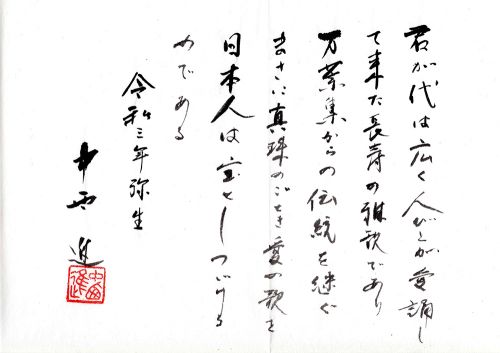 君が代は広く人びとが愛誦し
て来た長寿の雅歌であり
万葉集からの伝統を継ぐ
まさに真珠のごとき愛の歌を
日本人は宝としつづける
のである
令和三年弥生
中西進
中西進